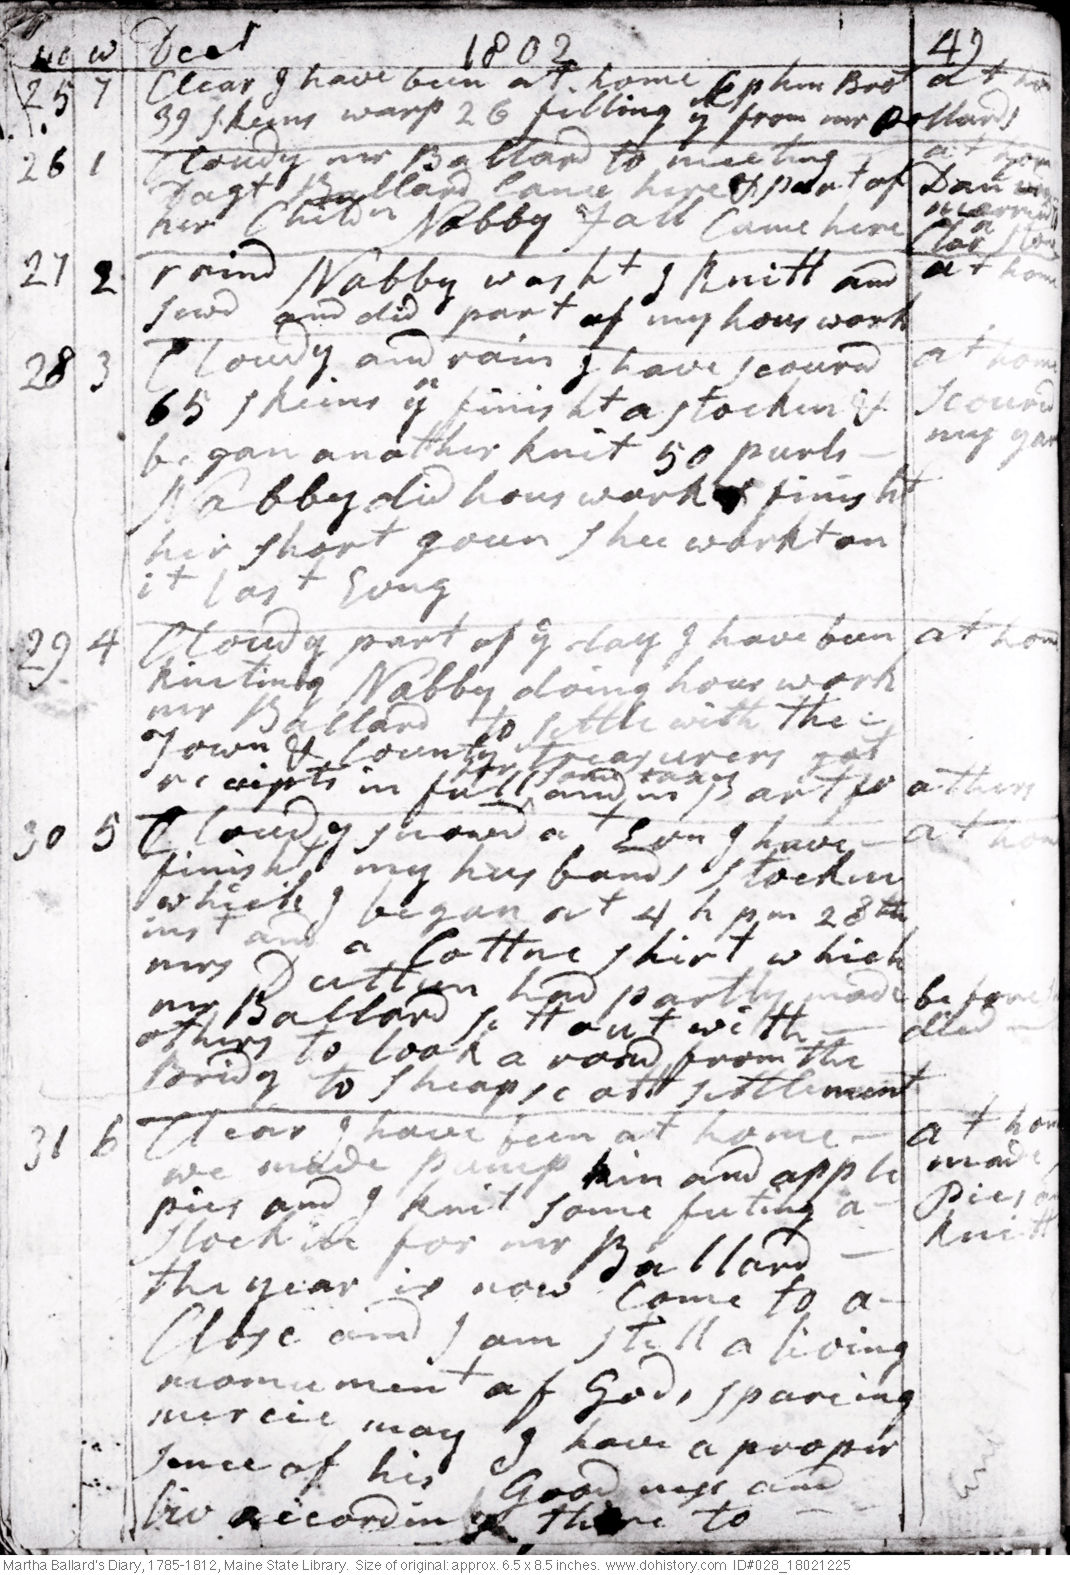 mo w Decr 1802 49
25 7 Clear I have been at home Ephm Brot at hom
39 skeins warp 26 filling yn from mr Pollards
26 1 Cloudy mr Ballard to meeting at home
Dagt Ballard Came here & part of Dan
her Childn Nabby Fall Came here
27 2 raind Nabby washt I knitt and at home
sewd and did part of my hous work
28 3 Cloudy and rain I have scourd at home
65 skeins yn finisht a stockin & scourd
began another knit 50 purls – my yar
Nabby did hous work & finisht
her short goun shee workt on
it last Evng
29 4 Cloudy part of ye day I have been at hom
kniting Nabby doing hous work
mr Ballard to settle with the
Town & County treasurers got
receipts in full and in Part for others
30 5 Cloudy snowd at Evn I have – at hom
finisht my husbands stockin
which I began at 4 h pm 28th
inst and a Cottne shirt which
mrs Dutten had partly made before
mr Ballard sett out with – died –
others to look a road from the
Bridg to Sheapscott settlement
31 6 Clear I have been at home – at hom
we made pumpkin and apple made
pies and I knit some futing a – Pies
stockin for mr Ballard – knitt
the year is now Come to a –
Close and I am still a living
monument of Gods spareing
mercie may I have a proper
sence of his Goodness and
liv according there to –
Martha Ballard's Diary, 1785-1812, Maine State Library. Size of original: approx. 6.5 x 8.5 inches. www.dohistory.com ID#028_18021225